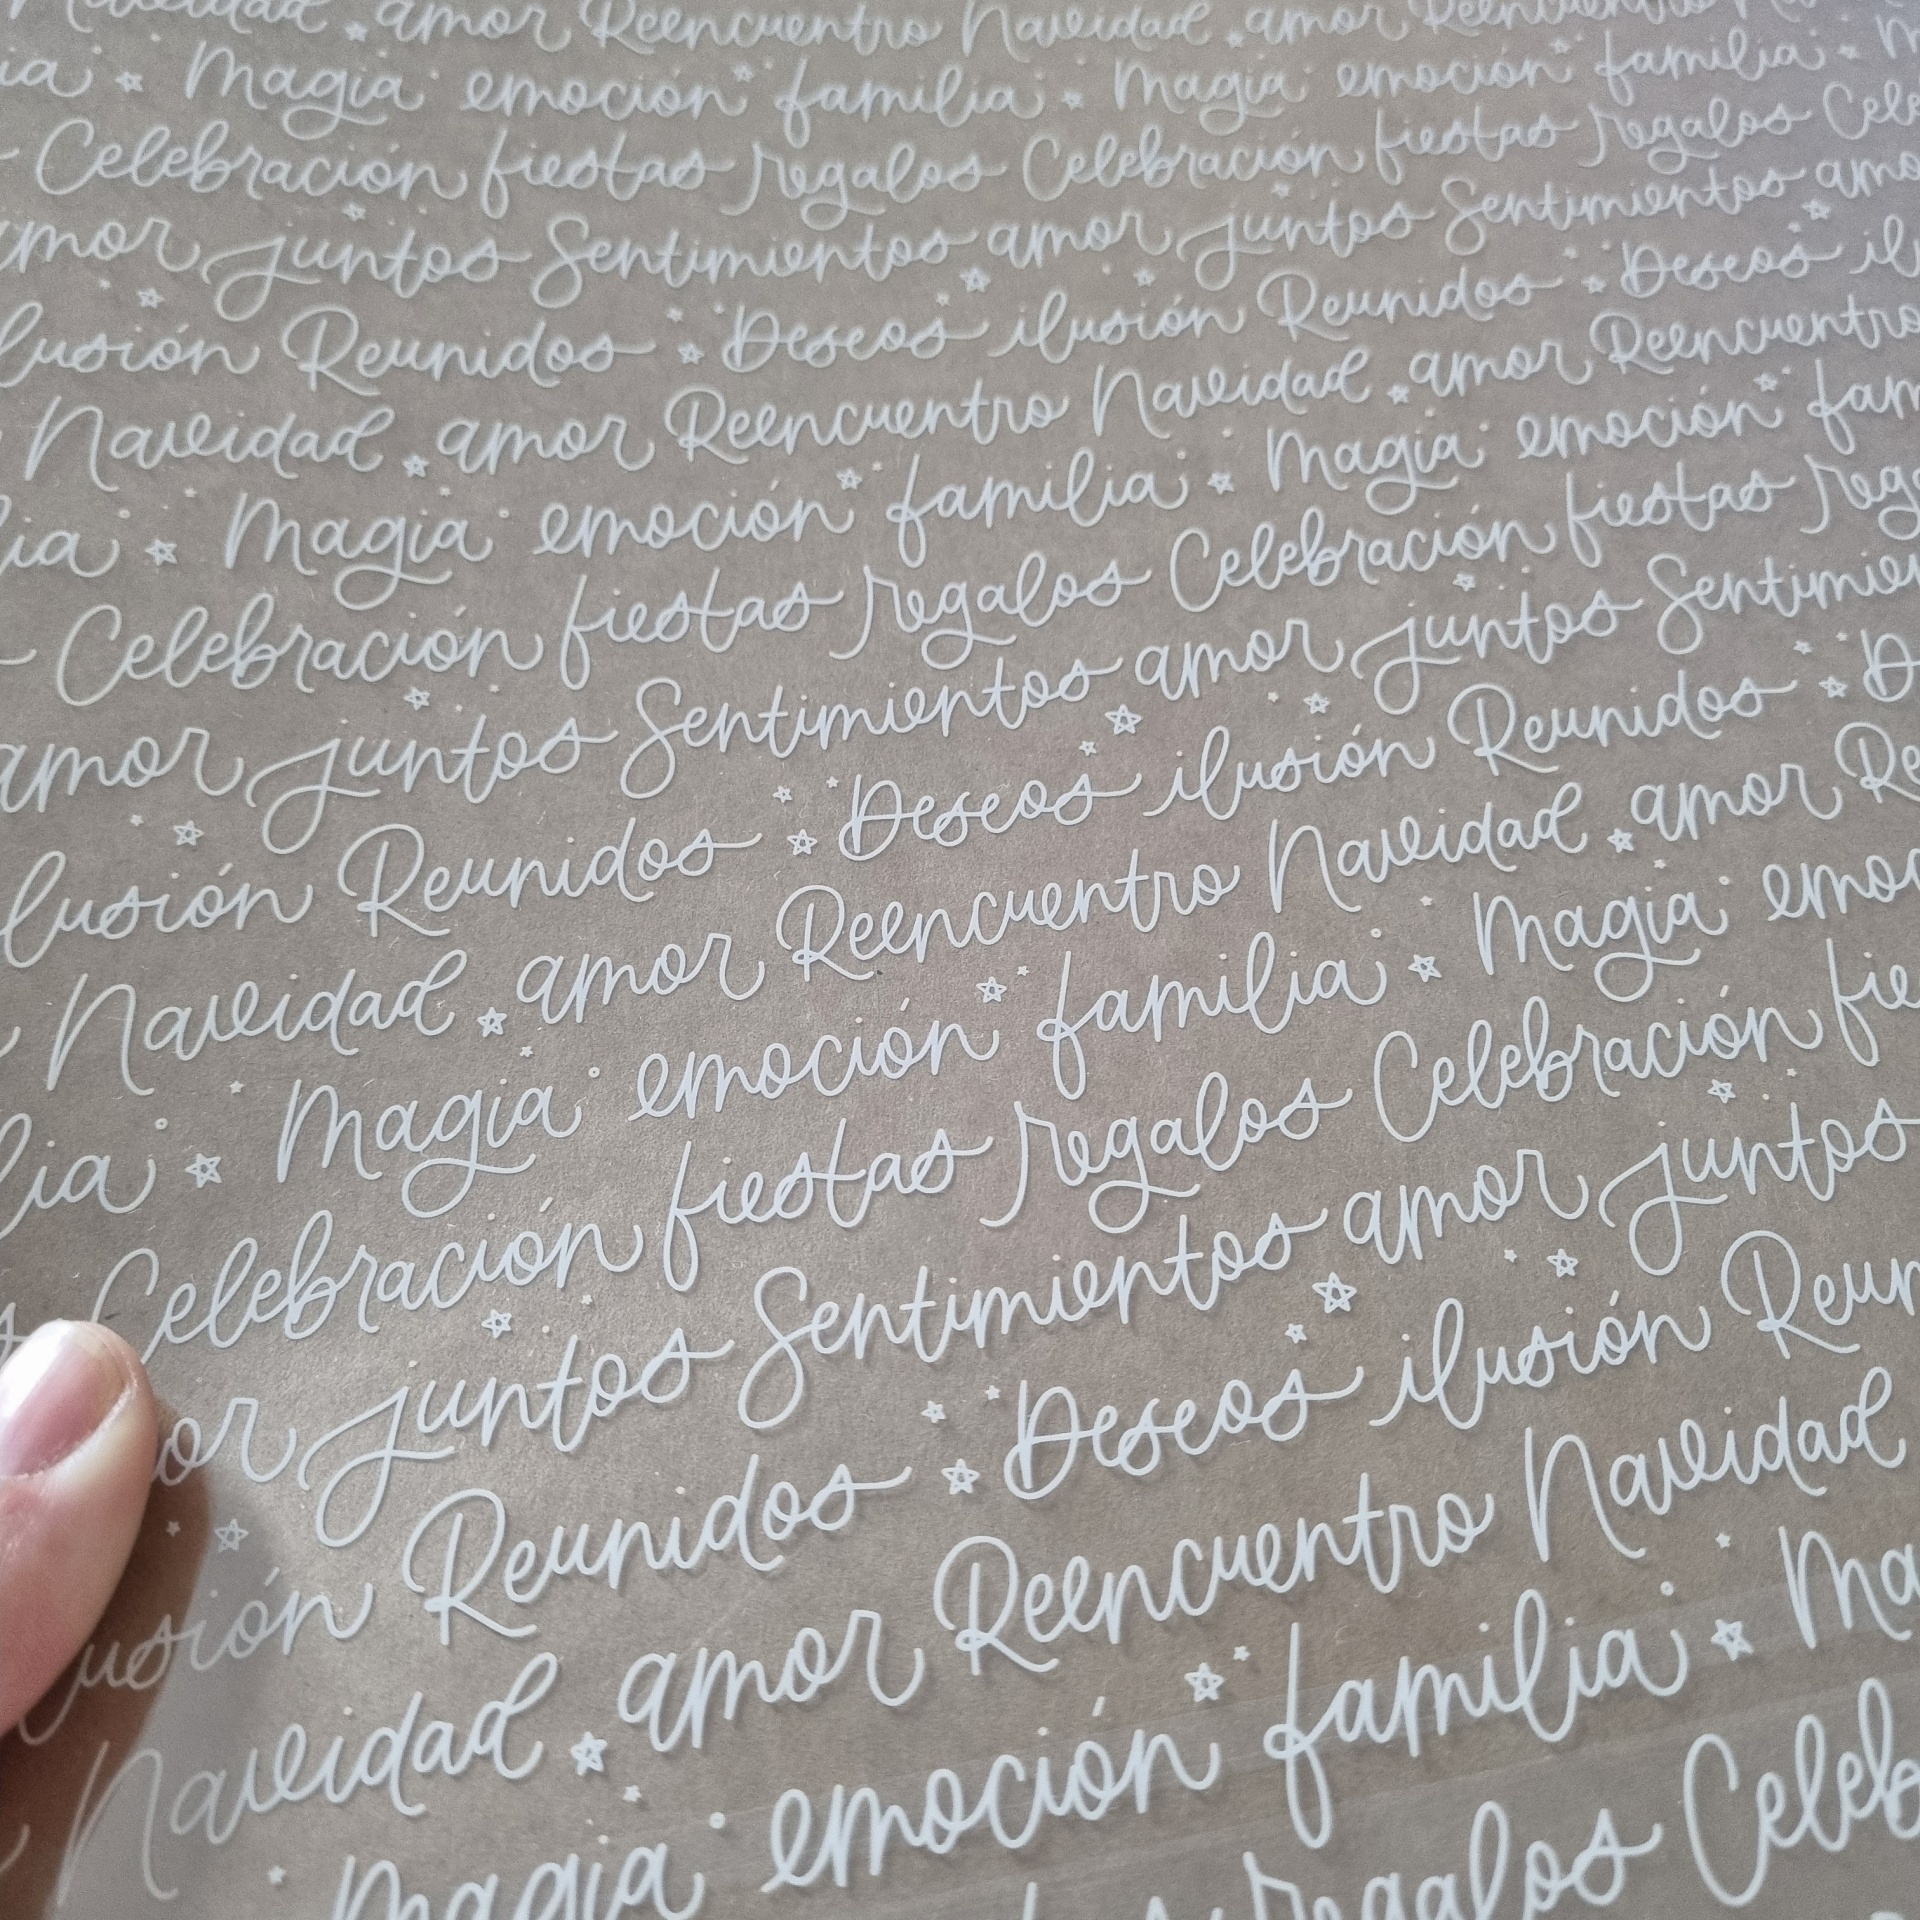 Navidad amor Reencuentro Navidad amor Reencuentro
Magia emoción familia Magia emoción familia
Celebración fiestas regalos Celebración fiestas regalos
amor juntos Sentimientos amor juntos Sentimientos
ilusión Reunidos Deseos ilusión Reunidos Deseos
Navidad amor Reencuentro Navidad amor Reencuentro
Magia emoción familia Magia emoción
Celebración fiestas regalos Celebración fiestas
amor juntos Sentimientos amor juntos
lusión Reunidos Deseos ilusión Reunidos
Navidad amor Reencuentro Navidad amor
lia Magia emoción familia Magia
Celebración fiestas regalos Celebración
or juntos Sentimientos amor juntos
usión Reunidos Deseos ilusión
Navidad amor Reencuentro Navidad
Magia emoción familia
regalos